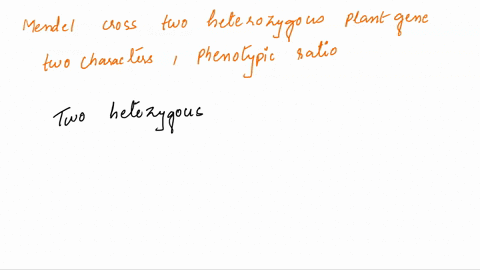 Mendel cross two heterozygous plant gene
two characters, phenotypic ratio
Two hetezygous